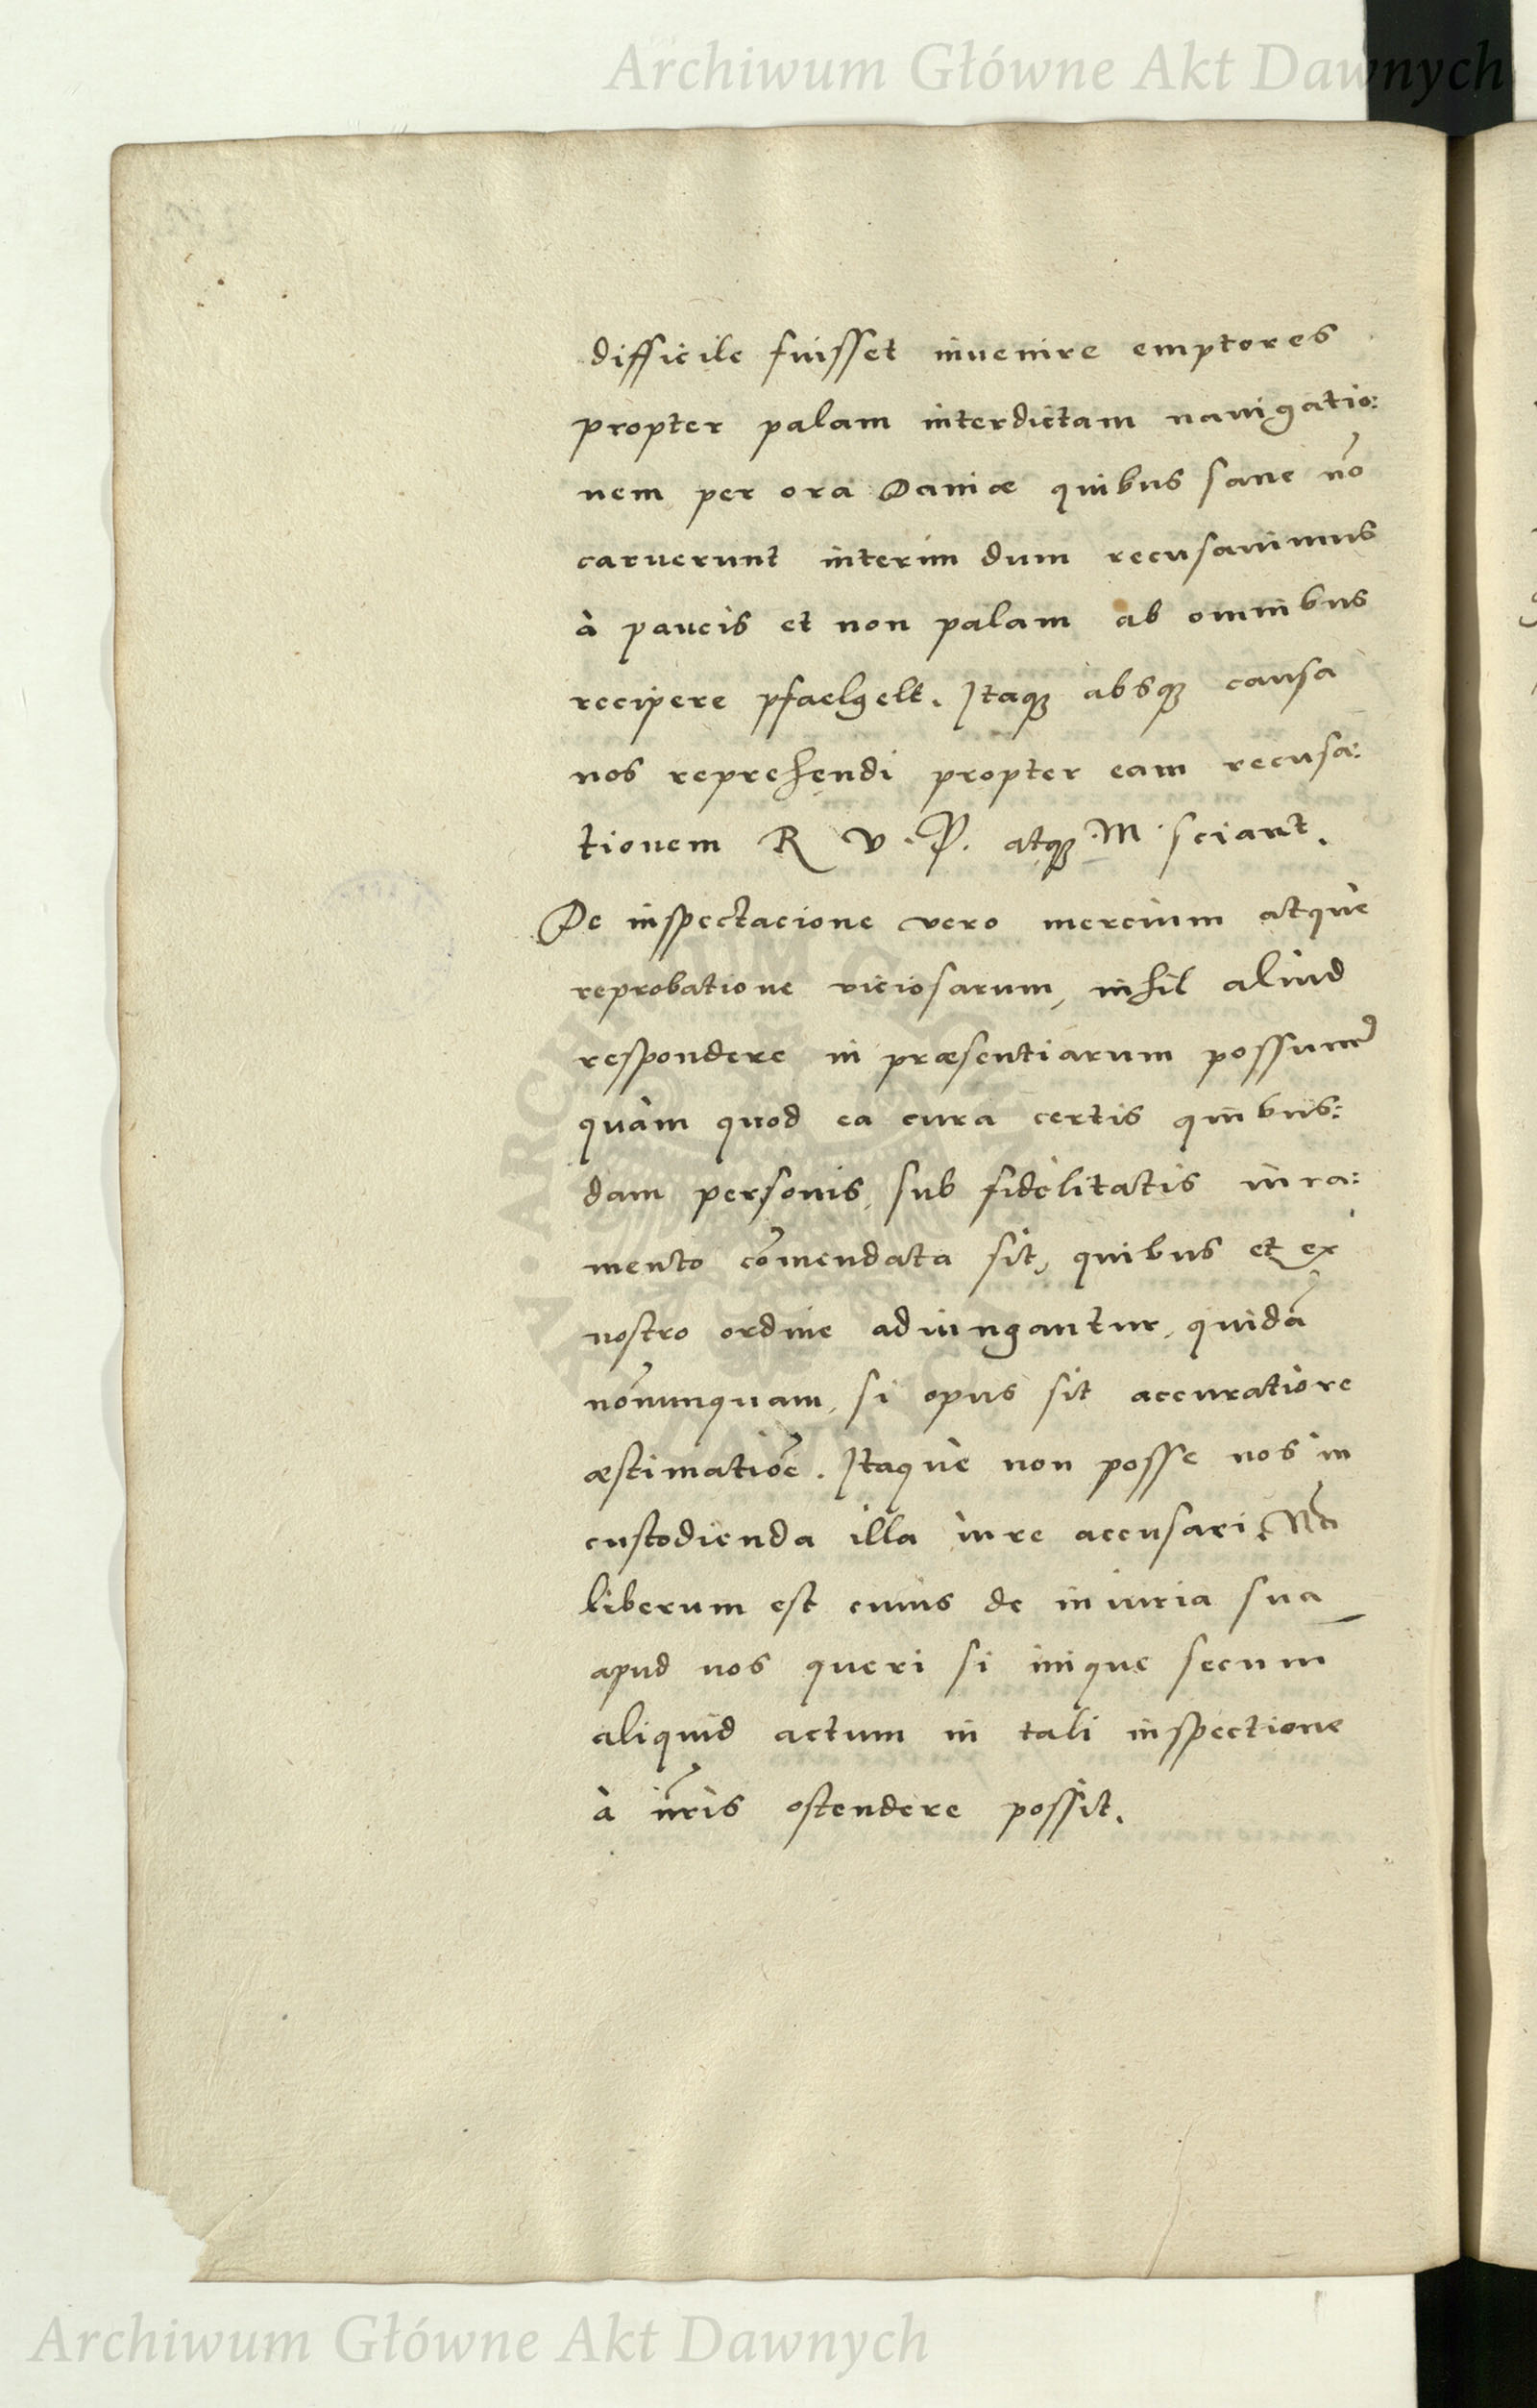 Archiwum Główne Akt Dawnych
difficile fuisset inuenire emptores
propter palam interdictam nauigatio:
nem per ora Daniæ quibus sane nō
caruerunt interim dum recusauimus
à paucis et non palam ab omnibus
recipere pfaelgelt. Itaqꝫ absqꝫ causa
nos reprehendi propter eam recusa:
tionem R V. P. atqꝫ M sciant.
De inspectacione vero mercium atque
reprobatione viciosarum, nihil aliud
respondere in præsentiarum possumꝰ
quàm quod ea cura certis quibus:
dam personis, sub fidelitatis iura:
mento cōmendata sit, quibus et ex
nostro ordine adiungantur, quidā
nōnunquam, si opus sit accuratiore
æstimatiōe. Itaque non posse nos in
custodienda illa iure accusari.
liberum est cuius de iniuria sua
apud nos queri si inique secum
aliquid actum in tali inspectione
à nr̄is ostendere possit.
Archiwum Główne Akt Dawnych